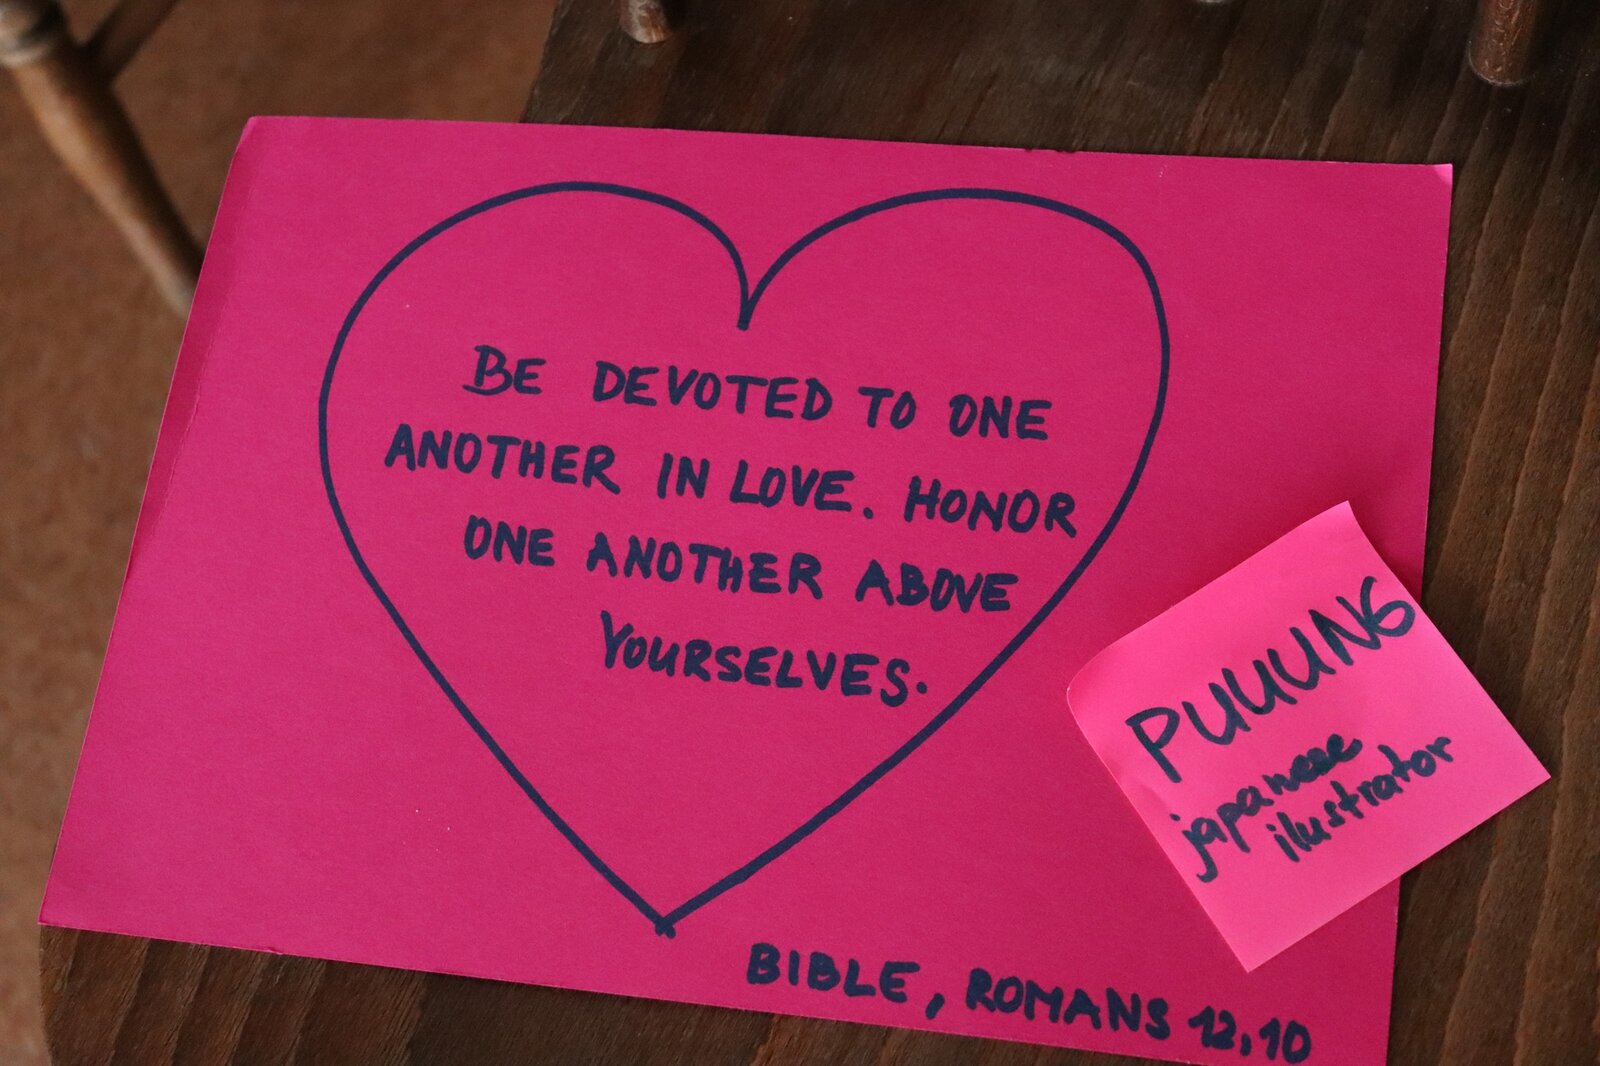 BE DEVOTED TO ONE
ANOTHER IN LOVE. HONOR
ONE ANOTHER ABOVE
YOURSELVES.
BIBLE, ROMANS 12,10
PUUUNG
japanese
ilustrator